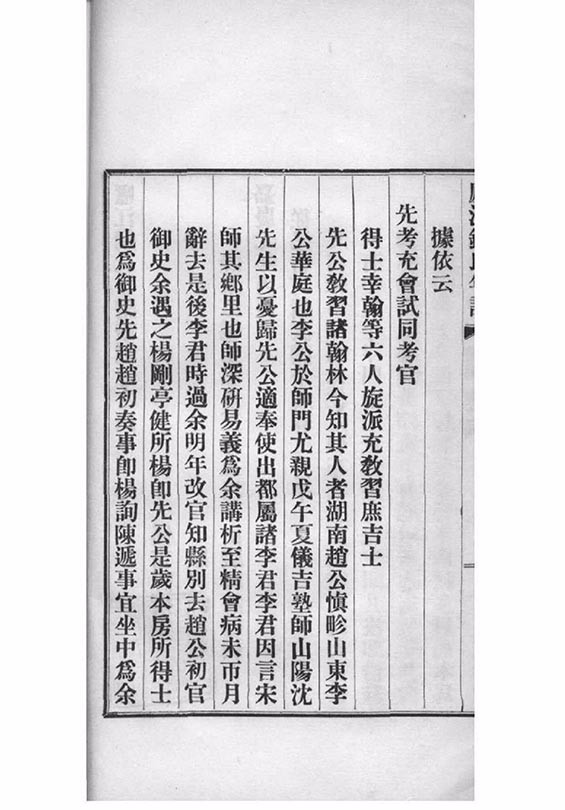 據依云
先考充會試同考官
得士幸翰等六人旋派充教習庶吉士
先公教習諸翰林今知其人者湖南趙公愼畛山東李
公華庭也李公於師門尤親戊午夏儀吉塾師山陽沈
先生以憂歸先公適奉使出都屬諸李君李君因言宋
師其鄉里也師深硏易義爲余講析至精會病未帀月
辭去是後李君時過余明年改官知縣別去趙公初官
御史余遇之楊剛亭健所楊卽先公是歲本房所得士
也爲御史先趙趙初奏事卽楊詢陳遞事宜坐中爲余